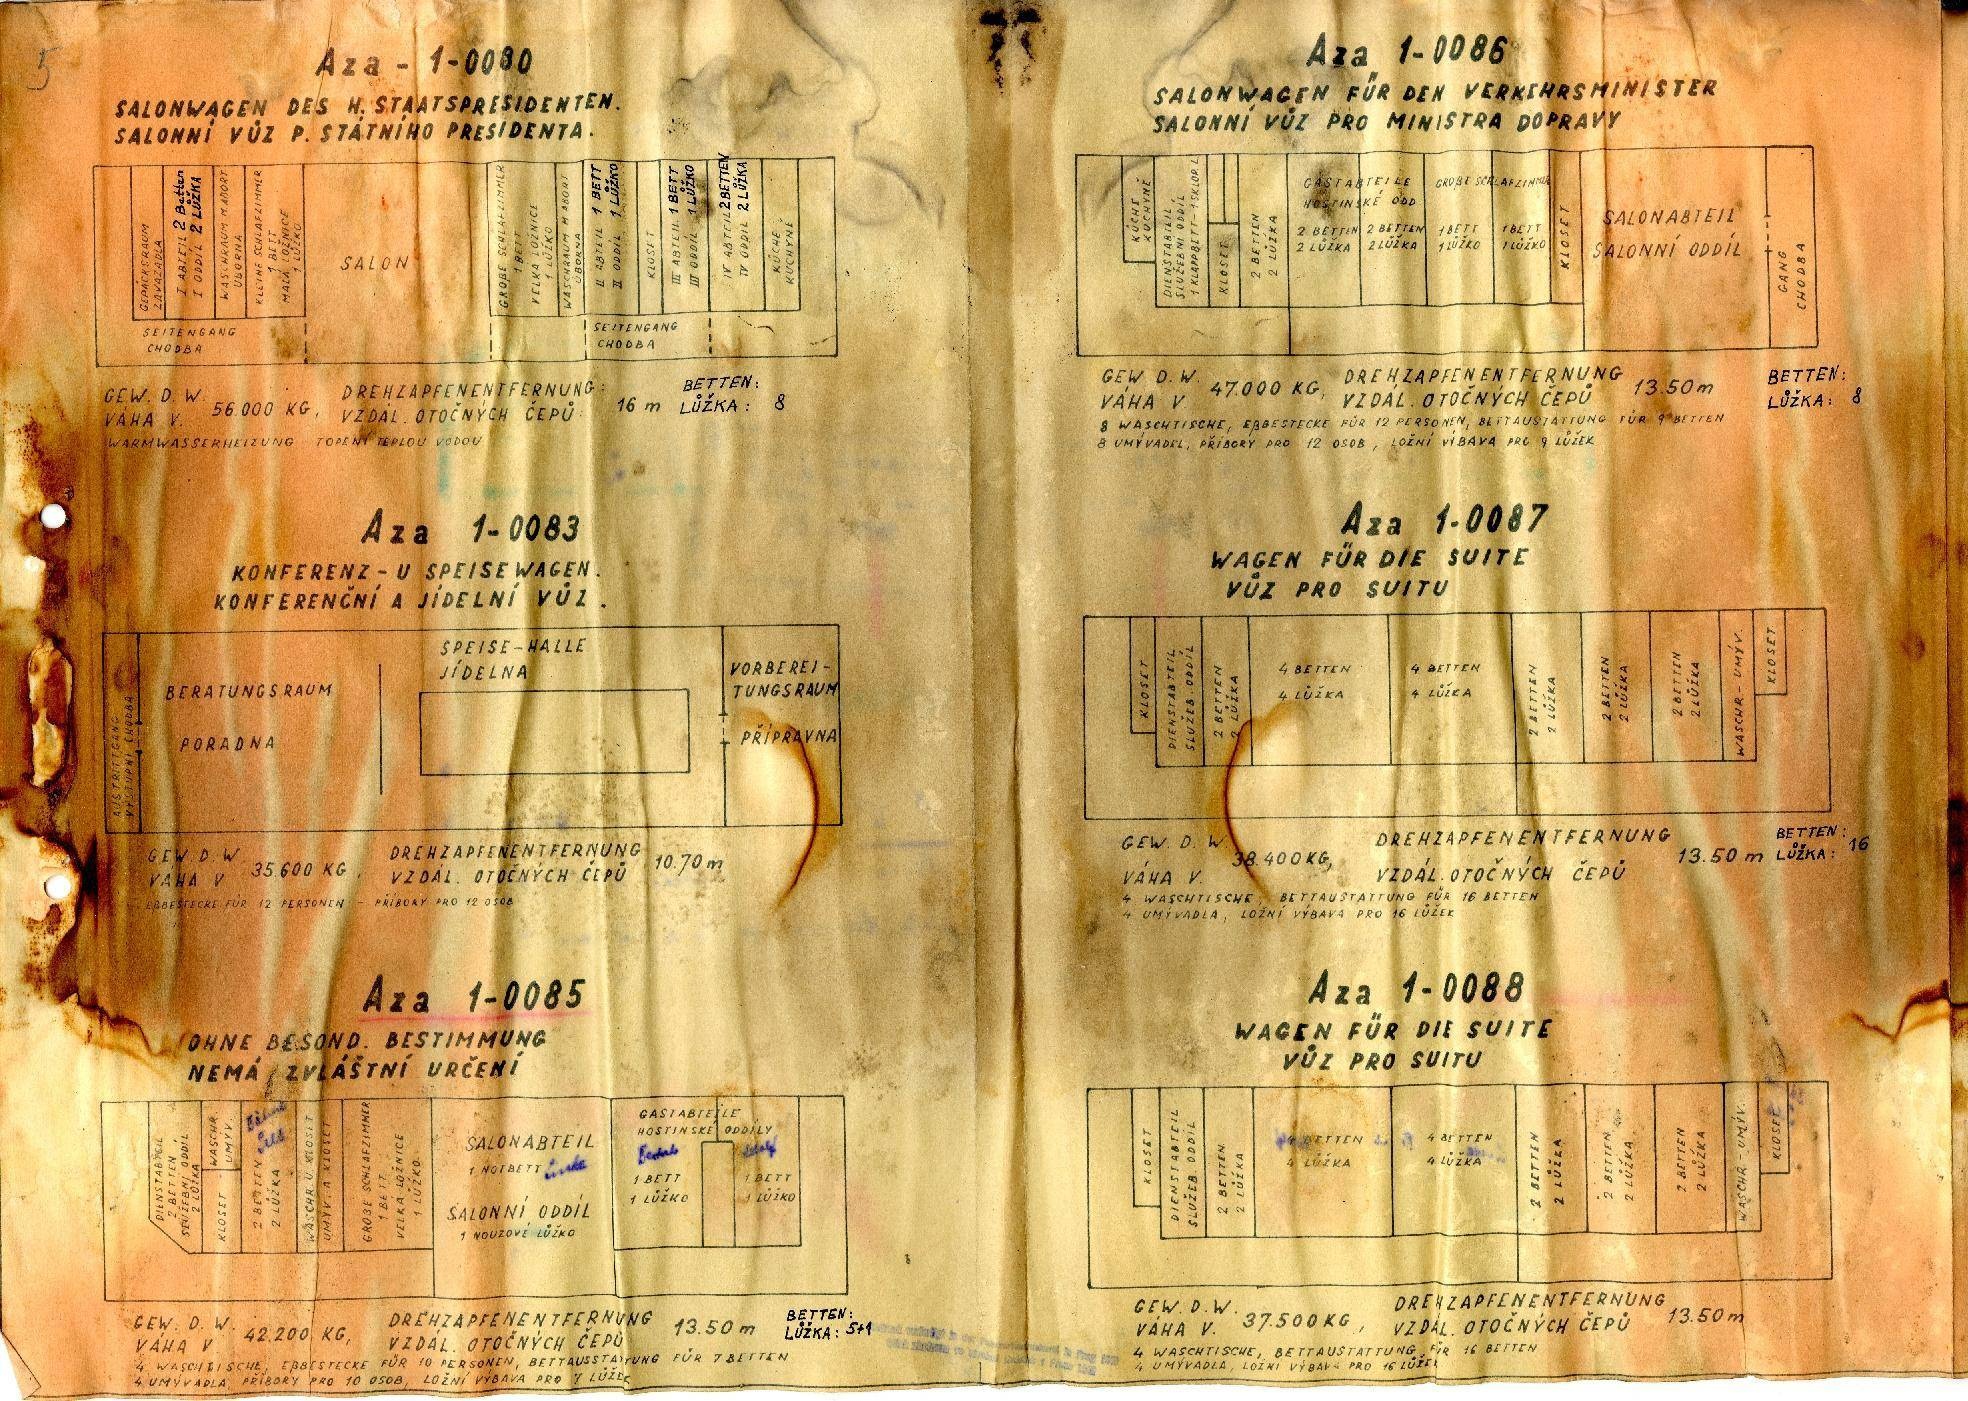 5
Aza - 1-0080
SALONWAGEN DES H. STAATSPRESIDENTEN.
SALONNÍ VŮZ P. STÁTNÍHO PRESIDENTA.
GEPÄCKSRAUM
ZAVAZADLA
I ABTEIL 2 Betten
I ODDÍL 2 LŮŽKA
WASCHRAUM M. ABORT
ÚBORNA
KLEINE SCHLAFZIMMER
1 BETT
MALÁ LOŽNICE
1 LŮŽKO
SALON
GROßE SCHLAFZIMMER
1 BETT
VELKÁ LOŽNICE
1 LŮŽKO
WASCHRAUM M ABORT
ÚBORNA
II ABTEIL 1 BETT
II ODDÍL 1 LŮŽKO
KLOSET
III ABTEIL 1 BETT
III ODDÍL 1 LŮŽKO
IV ABTEIL 2 BETTEN
IV ODDÍL 2 LŮŽKA
KÜCHE
KUCHYNĚ
SEITENGANG
CHODBA
SEITENGANG
CHODBA
GEW. D. W.
VÁHA V. 56.000 KG,
DREHZAPFENENTFERNUNG:
VZDÁL. OTOČNÝCH ČEPŮ: 16 m
BETTEN:
LŮŽKA: 8
WARMWASSERHEIZUNG TOPENÍ TEPLOU VODOU
Aza 1-0083
KONFERENZ - U SPEISEWAGEN.
KONFERENČNÍ A JÍDELNÍ VŮZ.
AUSTRITTGANG
VÝSTUPNÍ CHODBA
BERATUNGSRAUM
PORADNA
SPEISE-HALLE
JÍDELNA
VORBEREI-
TUNGSRAUM
PŘÍPRAVNA
GEW. D. W
VÁHA V 35.600 KG,
DREHZAPFENENTFERNUNG
VZDÁL. OTOČNÝCH ČEPŮ 10.70 m
EßBESTECKE FÜR 12 PERSONEN - PŘÍBORY PRO 12 OSOB
Aza 1-0085
OHNE BESOND. BESTIMMUNG
NEMÁ ZVLÁŠTNÍ URČENÍ
DIENSTABTEIL
2 BETTEN
SLUŽEBNÍ ODDÍL
2 LŮŽKA
WASCHR.
UMÝV.
KLOSET
2 BETTEN
2 LŮŽKA
WASCHR. U. KLOSET
UMÝV. A KLOSET
GROßE SCHLAFZIMMER
1 BETT
VELKÁ LOŽNICE
1 LŮŽKO
SALONABTEIL
1 NOTBETT
SALONNÍ ODDÍL
1 NOUZOVÉ LŮŽKO
GASTABTEILE
HOSTINSKÉ ODDÍLY
1 BETT
1 LŮŽKO
1 BETT
1 LŮŽKO
GEW. D. W.
VÁHA V 42.200 KG,
DREHZAPFENENTFERNUNG
VZDÁL. OTOČNÝCH ČEPŮ 13.50 m
BETTEN:
LŮŽKA: 5+1
4 WASCHTISCHE, EßBESTECKE FÜR 10 PERSONEN, BETTAUSSTATTUNG FÜR 7 BETTEN
4 UMÝVADLA, PŘÍBORY PRO 10 OSOB, LOŽNÍ VÝBAVA PRO 7 LŮŽEK
Aza 1-0086
SALONWAGEN FÜR DEN VERKEHRSMINISTER
SALONNÍ VŮZ PRO MINISTRA DOPRAVY
KÜCHE
KUCHYNĚ
DIENSTABTEIL
SLUŽEBNÍ ODDÍL
1 KLAPPBETT-1 SKLOP. L
KLOSET
2 BETTEN
2 LŮŽKA
GASTABTEILE
HOSTINSKÉ ODD
2 BETTEN
2 LŮŽKA
2 BETTEN
2 LŮŽKA
GROßE SCHLAFZIMMER
1 BETT
1 LŮŽKO
1 BETT
1 LŮŽKO
KLOSET
SALONABTEIL
SALONNÍ ODDÍL
GANG
CHODBA
GEW D. W.
VÁHA V 47.000 KG,
DREHZAPFENENTFERNUNG
VZDÁL. OTOČNÝCH ČEPŮ 13.50 m
BETTEN:
LŮŽKA: 8
8 WASCHTISCHE, EßBESTECKE FÜR 12 PERSONEN, BETTAUSTATTUNG FÜR 9 BETTEN
8 UMÝVADEL, PŘÍBORY PRO 12 OSOB, LOŽNÍ VÝBAVA PRO 9 LŮŽEK
Aza 1-0087
WAGEN FÜR DIE SUITE
VŮZ PRO SUITU
KLOSET
DIENSTABTEIL
SLUŽEB. ODDÍL
2 BETTEN
2 LŮŽKA
4 BETTEN
4 LŮŽKA
4 BETTEN
4 LŮŽKA
2 BETTEN
2 LŮŽKA
2 BETTEN
2 LŮŽKA
2 BETTEN
2 LŮŽKA
WASCHR - UMÝV.
KLOSET
GEW. D. W
VÁHA V. 38.400 KG,
DREHZAPFENENTFERNUNG
VZDÁL. OTOČNÝCH ČEPŮ 13.50 m
BETTEN:
LŮŽKA: 16
4 WASCHTISCHE, BETTAUSTATTUNG FÜR 16 BETTEN
4 UMÝVADLA, LOŽNÍ VÝBAVA PRO 16 LŮŽEK
Aza 1-0088
WAGEN FÜR DIE SUITE
VŮZ PRO SUITU
KLOSET
DIENSTABTEIL
SLUŽEB ODDÍL
2 BETTEN
2 LŮŽKA
4 BETTEN
4 LŮŽKA
4 BETTEN
4 LŮŽKA
2 BETTEN
2 LŮŽKA
2 BETTEN
2 LŮŽKA
2 BETTEN
2 LŮŽKA
WASCHR - UMÝV.
KLOSET
GEW. D. W.
VÁHA V. 37.500 KG,
DREHZAPFENENTFERNUNG
VZDÁL. OTOČNÝCH ČEPŮ 13.50 m
4 WASCHTISCHE, BETTAUSTATTUNG FÜR 16 BETTEN
4 UMÝVADLA, LOŽNÍ VÝBAVA PRO 16 LŮŽEK